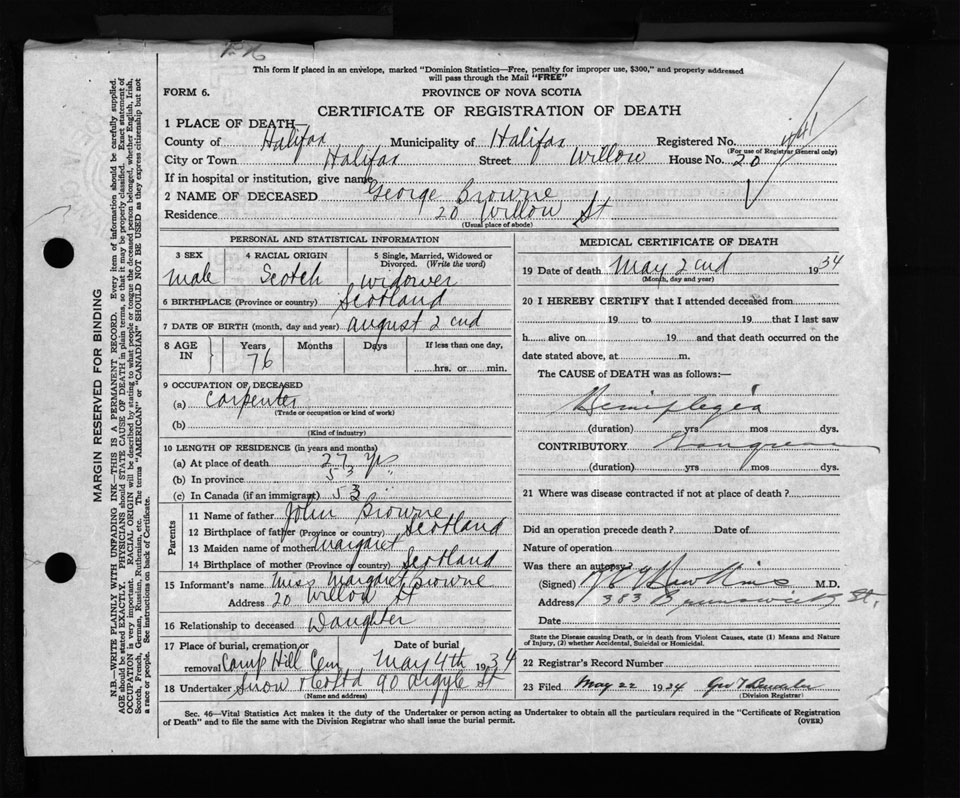 This form if placed in an envelope, marked "Dominion Statistics—Free, penalty for improper use, $300," and properly addressed
will pass through the Mail "FREE"
FORM 6.
PROVINCE OF NOVA SCOTIA
CERTIFICATE OF REGISTRATION OF DEATH
1 PLACE OF DEATH—
County of Halifax Municipality of Halifax Registered No.
(For use of Registrar General only)
City or Town Halifax Street Willow House No. 20
If in hospital or institution, give name
2 NAME OF DECEASED George Browne
Residence 20 Willow St
(Usual place of abode)
PERSONAL AND STATISTICAL INFORMATION
3 SEX 4 RACIAL ORIGIN 5 Single, Married, Widowed or
Divorced. (Write the word)
male Scotch widower
6 BIRTHPLACE (Province or country) Scotland
7 DATE OF BIRTH (month, day and year) August 2 cnd
8 AGE IN Years Months Days If less than one day,
76 hrs. or min.
9 OCCUPATION OF DECEASED
(a) Carpenter
(Trade or occupation or kind of work)
(b)
(Kind of industry)
10 LENGTH OF RESIDENCE (in years and months)
(a) At place of death 27 yrs
(b) In province 53 "
(c) In Canada (if an immigrant) 53
Parents
11 Name of father John Browne
12 Birthplace of father (Province or country) Scotland
13 Maiden name of mother Margaret
14 Birthplace of mother (Province or country) Scotland
15 Informant's name Miss Margaret Browne
Address 20 Willow St
16 Relationship to deceased Daughter
17 Place of burial, cremation or removal Date of burial
Camp Hill Cem May 4th 1934
18 Undertaker Snow & Co Ltd 90 Argyle St
(Name and address)
MEDICAL CERTIFICATE OF DEATH
19 Date of death May 2 cnd 1934
(Month, day and year)
20 I HEREBY CERTIFY that I attended deceased from
19 to 19 that I last saw
h alive on 19 and that death occurred on the
date stated above, at m.
The CAUSE of DEATH was as follows:—
Hemiplegia
(duration) yrs mos dys.
CONTRIBUTORY Gangrene
(duration) yrs mos dys.
21 Where was disease contracted if not at place of death?
Did an operation precede death? Date of
Nature of operation
Was there an autopsy?
(Signed) Hawkins M.D.
Address 383 Brunswick St.
Date
State the Disease causing Death, or in death from Violent Causes, state (1) Means and Nature
of Injury, (2) whether Accidental, Suicidal or Homicidal.
22 Registrar's Record Number
23 Filed May 22 1934 Geo
(Division Registrar)
Sec. 46—Vital Statistics Act makes it the duty of the Undertaker or person acting as Undertaker to obtain all the particulars required in the "Certificate of Registration
of Death" and to file the same with the Division Registrar who shall issue the burial permit.
(OVER)
MARGIN RESERVED FOR BINDING
N.B.—WRITE PLAINLY WITH UNFADING INK—THIS IS A PERMANENT RECORD. Every item of information should be carefully supplied.
AGE should be stated EXACTLY. PHYSICIANS should STATE CAUSE OF DEATH in plain terms, so that it may be properly classified. Exact statement of
OCCUPATION is very important. RACIAL ORIGIN will be described by stating to what people or tongue the deceased person belonged, whether English, Irish,
Scotch, French, German, Russian, Ruthenian, etc. The terms "AMERICAN" or "CANADIAN" SHOULD NOT BE USED as they express citizenship but not
a race or people. See instructions on back of Certificate.